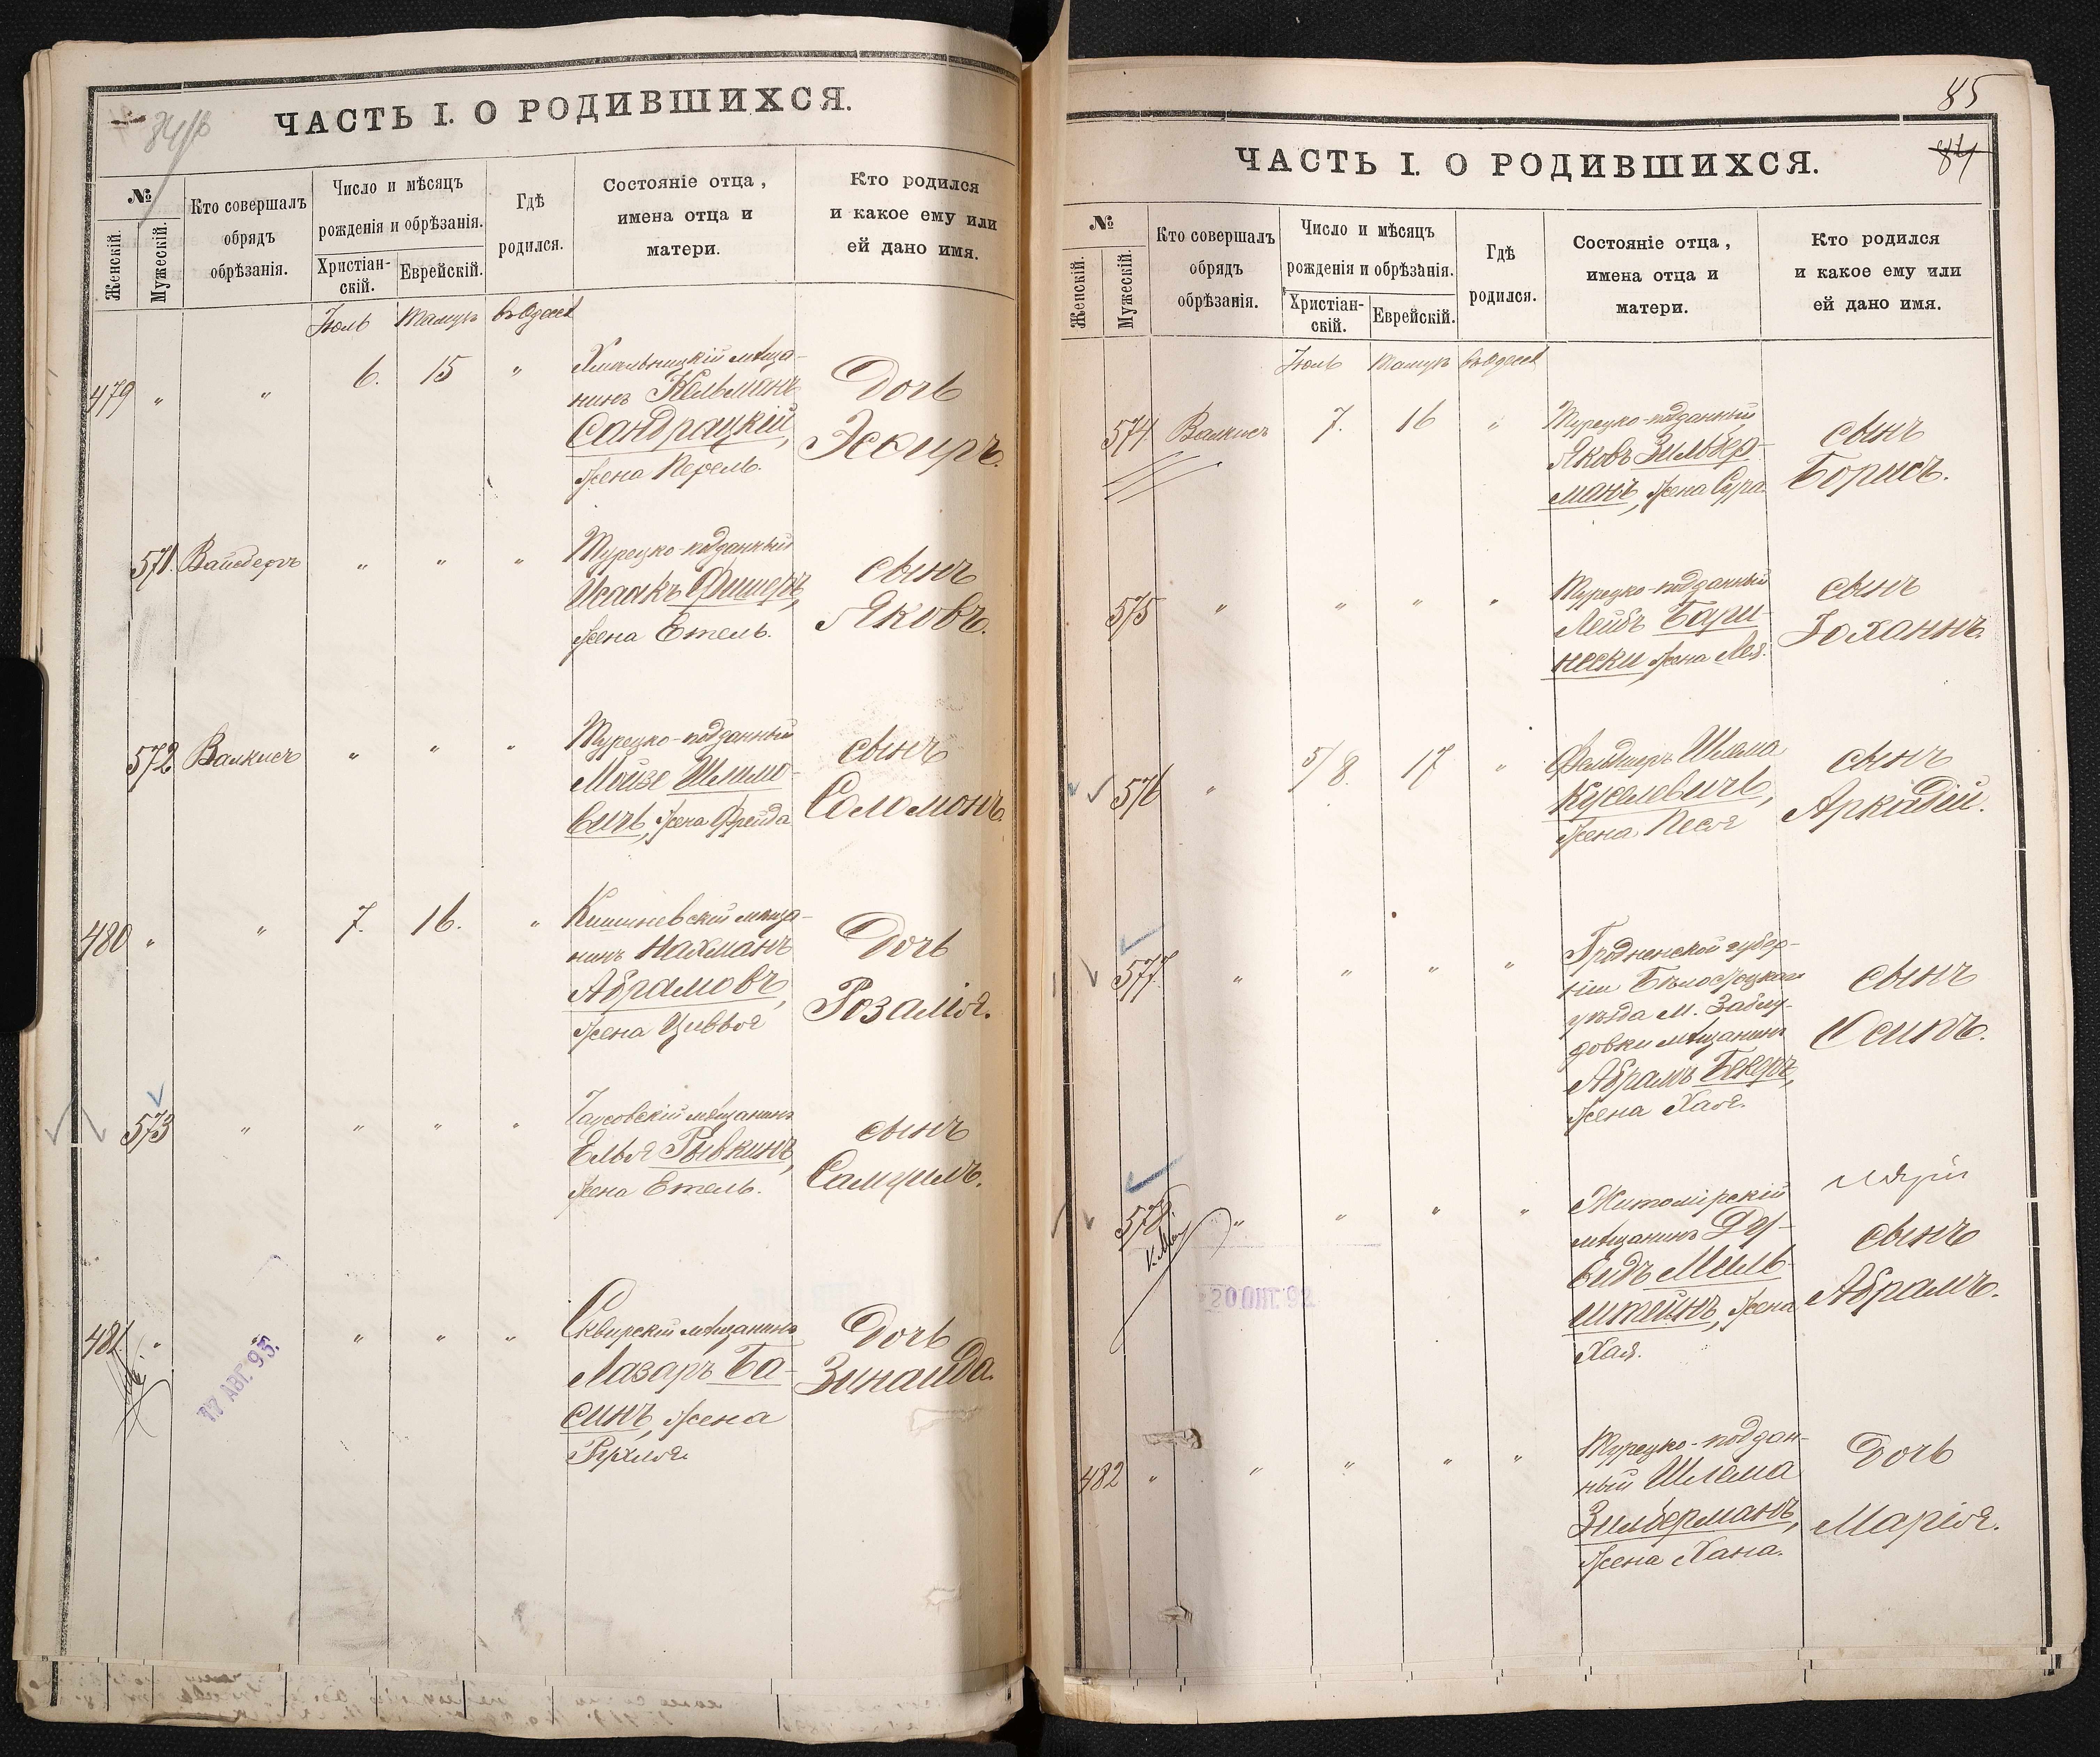 ЧАСТЬ I. О РОДИВШИХСЯ.
№
Женскій.
Мужескій.
Кто совершалъ
обрядъ
обрѣзанія.
Число и мѣсяцъ
рожденія и обрѣзанія.
Христіан-
скій.
Еврейскій.
Гдѣ
родился.
Состояніе отца,
имена отца и
матери.
Кто родился
и какое ему или
ей дано имя.
Іюль Тамузъ въ Одессѣ
479 " " 6. 15 "
Хмельницкій мѣща-
нинъ Кельманъ
Сандрацкій,
жена Перель.
Дочь
Эсѳирь.
571. Вайсбергъ " " "
Турецко-подданный
Исаакъ Фишеръ,
жена Етель.
сынъ
Яковъ.
572 Валкисъ " " "
Турецко-подданный
Мойзе Шмило-
вичъ, жена Фрейда
сынъ
Соломонъ.
480 " " 7. 16. "
Кишиневскій мѣща-
нинъ Нахманъ
Абрамовъ,
жена Цивья
Дочь
Розалія.
573 " " " "
Чаусовскій мѣщанинъ
Елья Рывкинъ,
жена Етель.
сынъ
Самуилъ.
481. " " " "
17 АВГ. 95.
Сквирскій мѣщанинъ
Лазарь Ба-
синъ, жена
Рухля.
Дочь
Зинаида.
85
84
ЧАСТЬ I. О РОДИВШИХСЯ.
№
Женскій.
Мужескій.
Кто совершалъ
обрядъ
обрѣзанія.
Число и мѣсяцъ
рожденія и обрѣзанія.
Христіан-
скій.
Еврейскій.
Гдѣ
родился.
Состояніе отца,
имена отца и
матери.
Кто родился
и какое ему или
ей дано имя.
Іюль Тамузъ въ Одессѣ
574. Валкисъ 7. 16 "
Турецко-подданный
Яковъ Зильбер-
манъ, жена Сура.
сынъ
Борисъ.
575 " " " "
Турецко-подданный
Лейбъ Бари-
нески жена Лея.
сынъ
Іоханнъ.
576 " 8. 17 "
Фельдшеръ Шлема
Куселевичъ,
жена Песя
сынъ
Аркадій.
577. " " " "
Гродненской губер-
ніи Бѣлостоцкаго
уѣзда М. Заблу-
довки мѣщанинъ
Абрамъ Бекеръ,
жена Хая.
сынъ
Осипъ.
578. " " " "
Житомірскій
мѣщанинъ Ду-
видъ Миль-
штейнъ, жена
Хая.
сынъ
Абрамъ.
482 " " " " "
Турецко-поддан-
ный Шлема
Зильберманъ,
жена Хана.
Дочь
Марія.